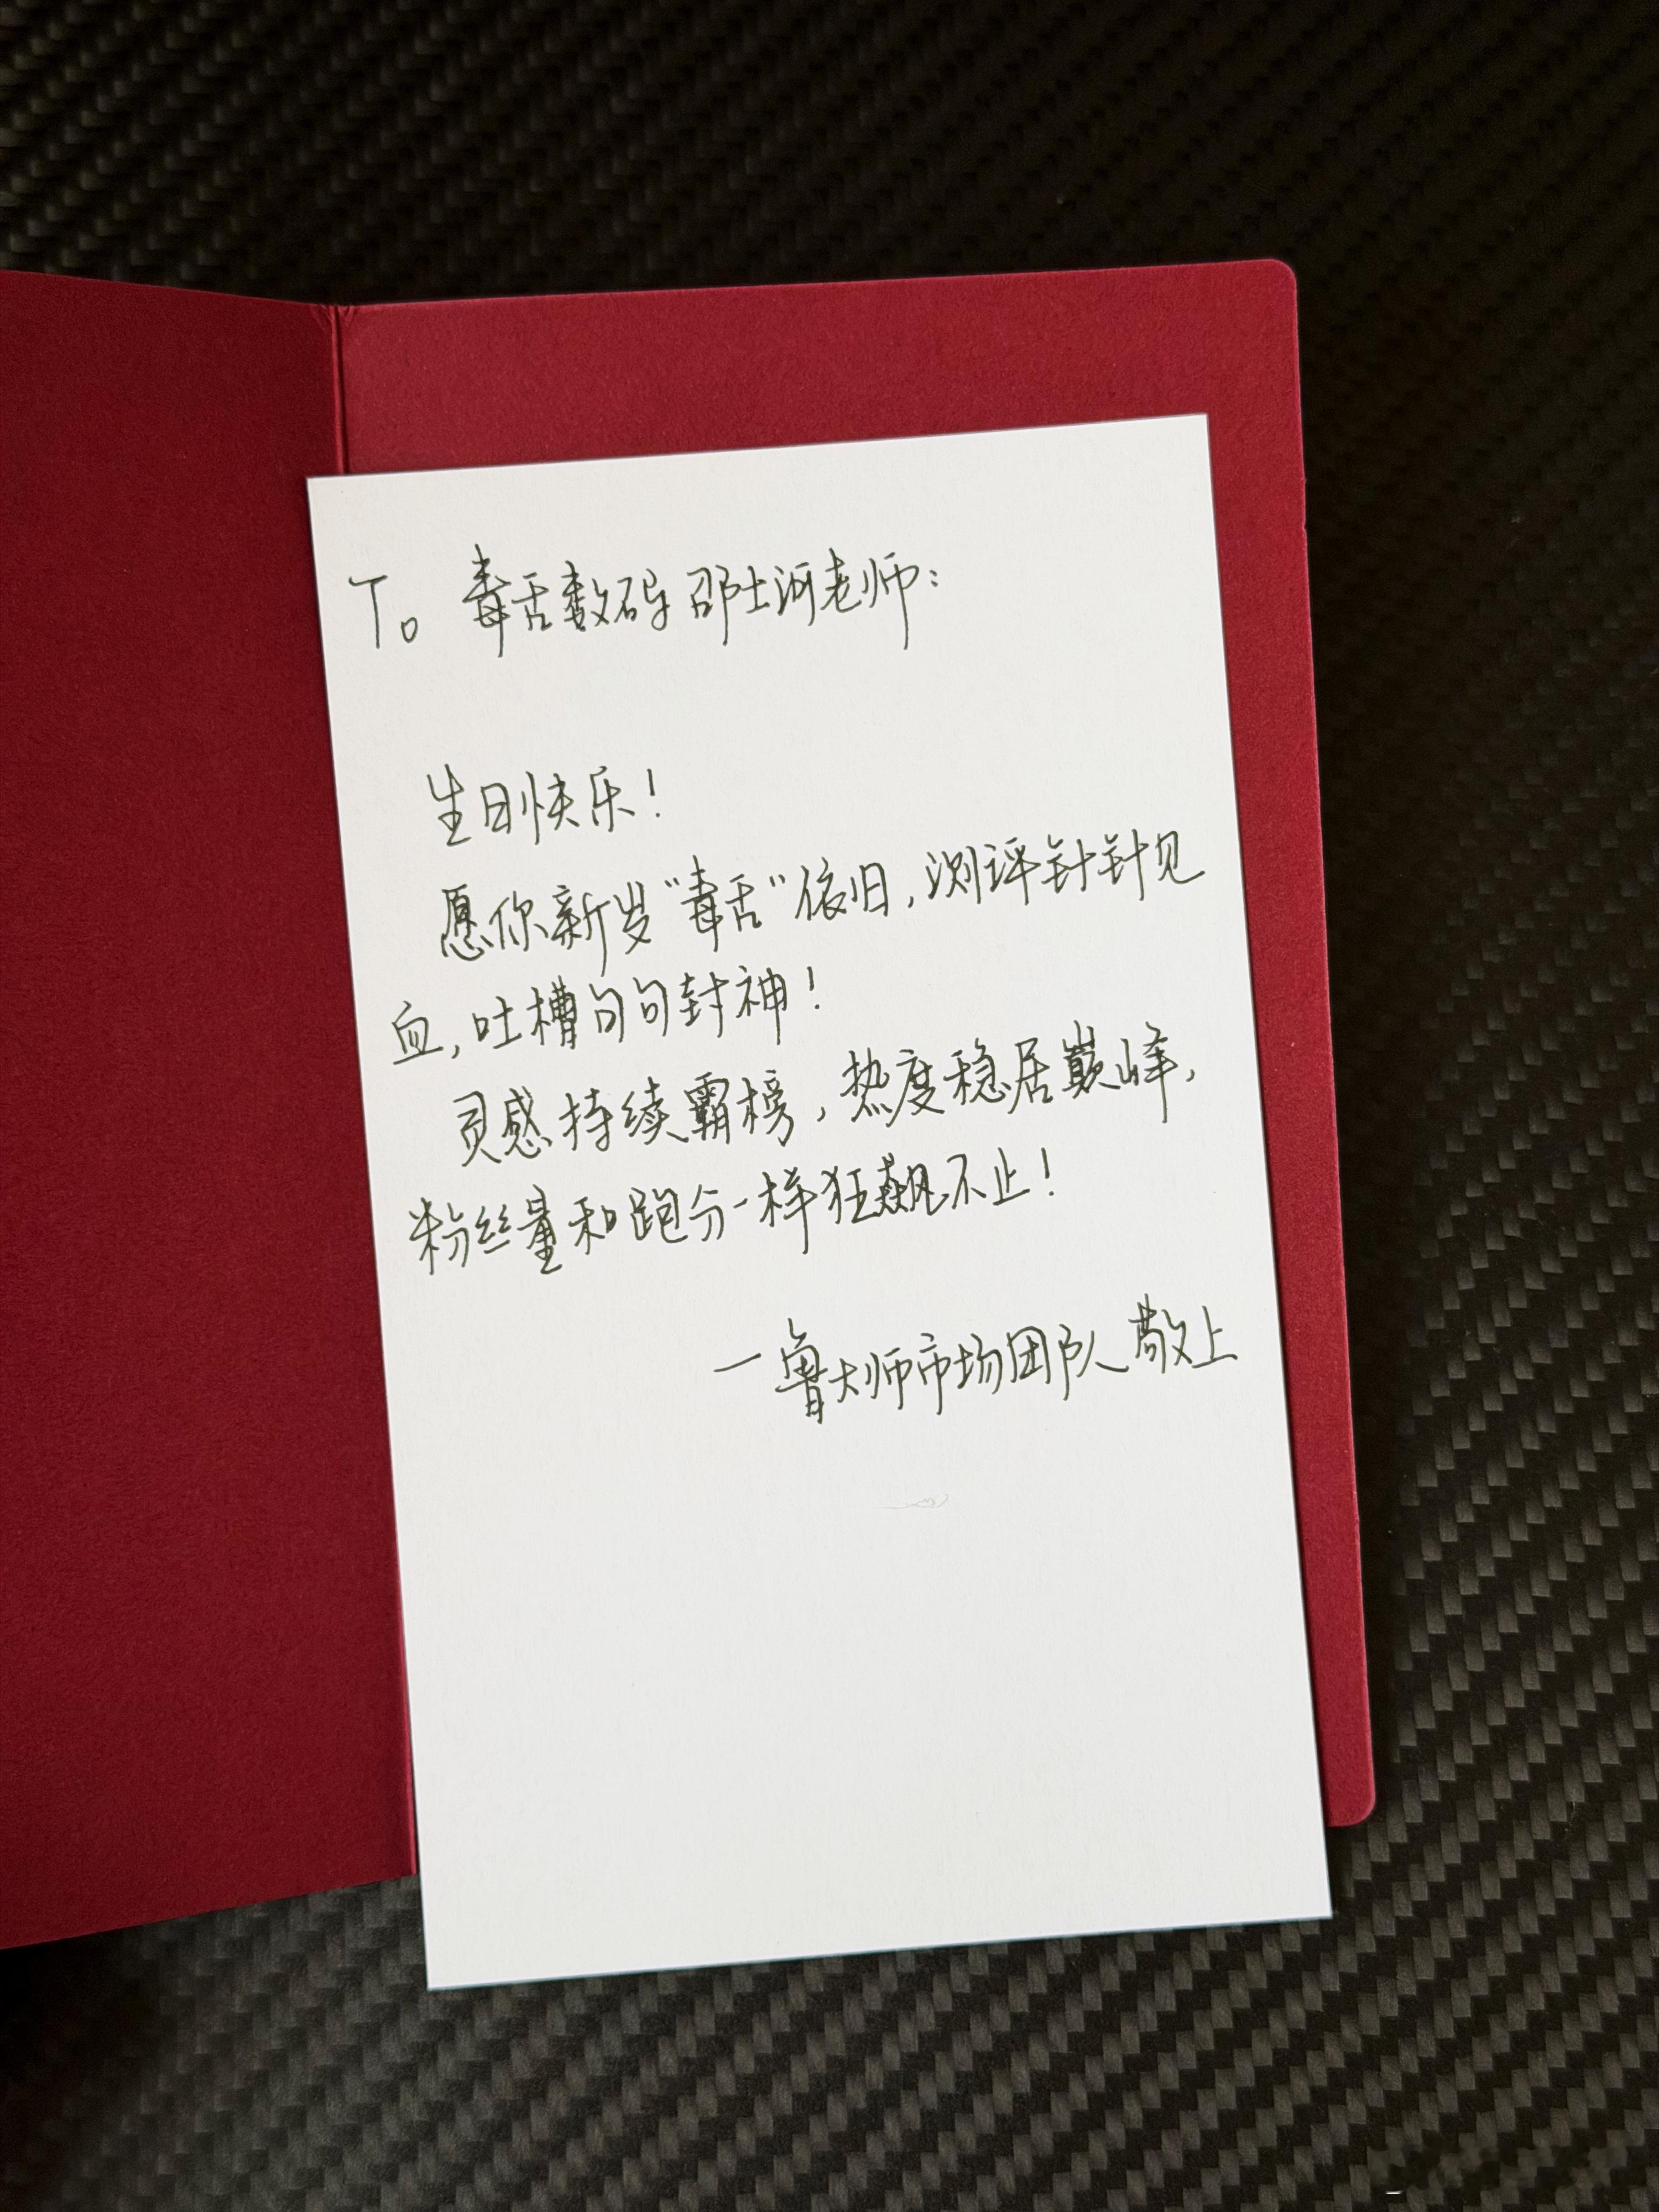 To 毒舌数码 邵士河老师:
生日快乐!
愿你新岁“毒舌”依旧,测评针针见
血,吐槽句句封神!
灵感持续霸榜,热度稳居巅峰,
粉丝量和跑分一样狂飙不止!
—鲁大师市场团队 敬上